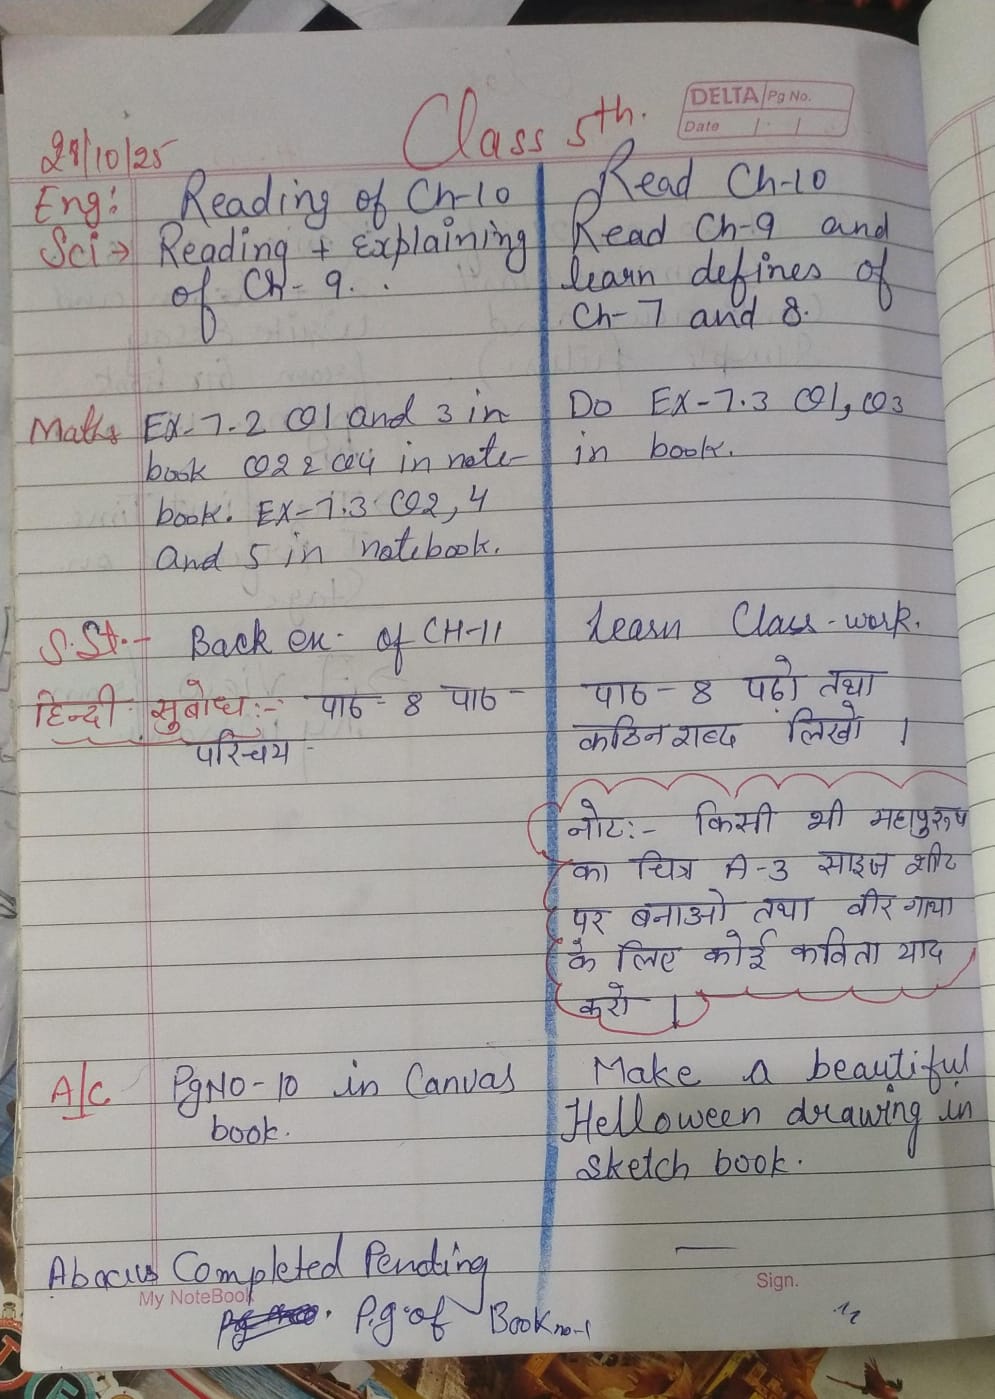 Class 5th.
DELTA Pg No.
Date / /
/10/25
Eng: Reading of Ch-10
Read Ch-10
Sci → Reading + Explaining
of Ch- 9. .
Read Ch-9 and
learn defines of
Ch- 7 and 8.
Maths EX-7.2 Q1 and 3 in
book Q2 & Q4 in note-
book. EX-7.3 Q2, 4
and 5 in notebook.
Do EX-7.3 Q1, Q3
in book.
S.St.- Back ex. of CH-11
Learn Class-work.
हिन्दी सुबोध:- पाठ- 8 पाठ-
परिचय -
पाठ - 8 पढ़ो तथा
कठिन शब्द लिखो ।
नोट:- किसी भी महापुरुष
का चित्र A-3 साइज शीट
पर बनाओ तथा वीर गाथा
के लिए कोई कविता याद
करो ।
A/C PgNO-10 in Canvas
book.
Make a beautiful
Helloween drawing in
sketch book.
Abacus Completed Pending
P.g of Book no-1
—
My NoteBook
Sign.